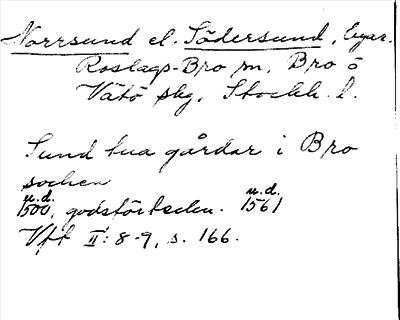 Norrsund el. Södersund, bgar.
Roslags-Bro sn, Bro o
Vätö skg, Stockh. l.
Sund tua gårdar i Bro
socken
u.d. u.d.
1500, godsförteckn. 1561
Vff II: 8-9, s. 166.